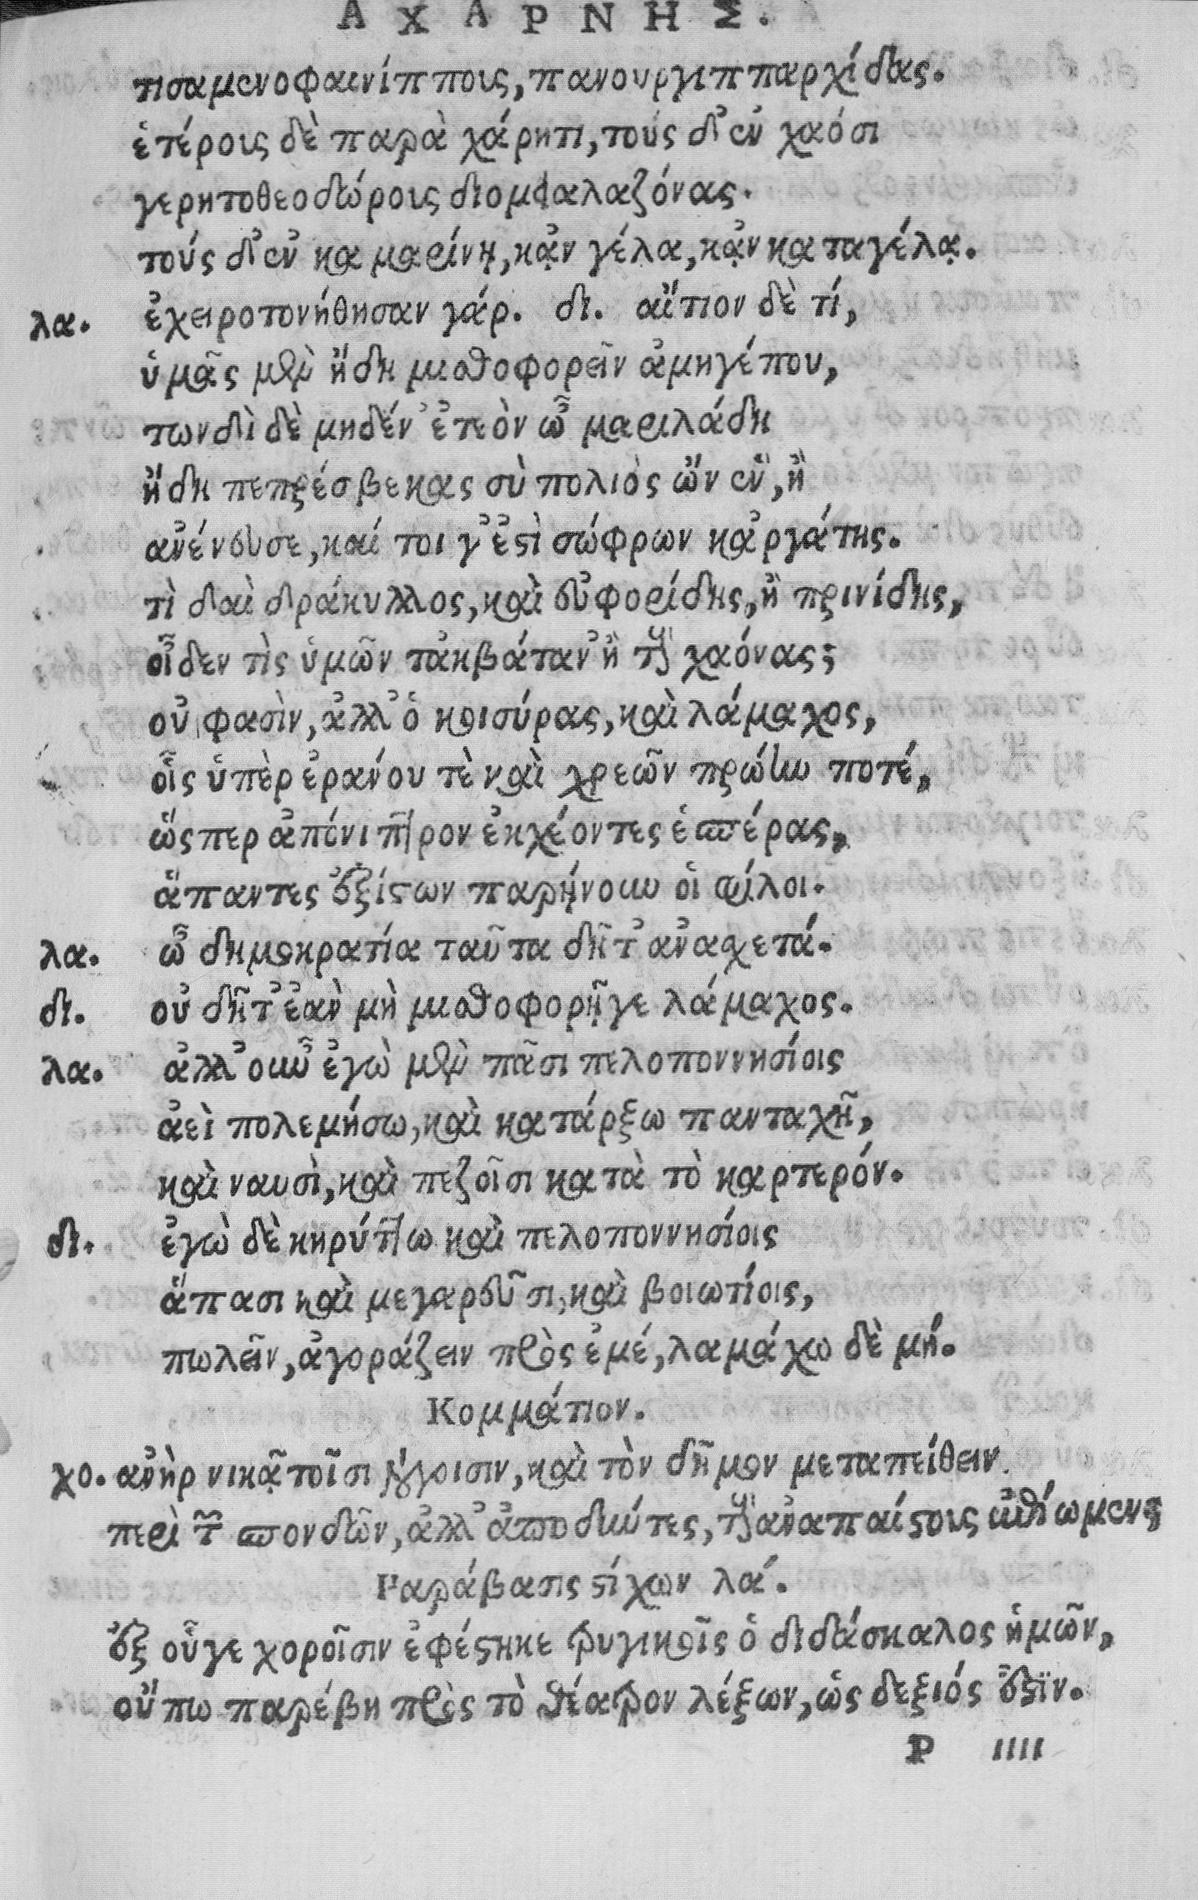 ΑΧΑΡΝΗΣ.
τισαμενοφαινίππους, πανουργιππαρχίδας.
ἑτέροις δὲ παρὰ χάρητι, τούς δ' ἐν χαόσι
γερητοθεοδώροις διομφαλαζόνας.
τούς δ' ἐν καμαρίνῃ, κᾂν γέλα, κᾂν καταγέλᾳ.
λα. ἐχειροτονήθησαν γάρ. δι. αἴτιον δὲ τί,
ὑμᾶς μὲν ἤδη μισθοφορεῖν ἀμηγέπου,
τωνδὶ δὲ μηδέν' ἐτεὸν ὦ μαριλάδη
ἤδη πεπρέσβεκας σὺ πολιὸς ὢν ἓν, ἢ
ἀνένευσε, καί τοι γ' ἐστὶ σώφρων κἀργάτης.
τὶ δαὶ δράκυλλος, καὶ εὐφορίδης, ἢ πρινίδης,
οἶδεν τὶς ὑμῶν τἀκβάταν' ἢ τοὺς χαόνας;
οὐ φασὶν, ἀλλ' ὁ κοισύρας, καὶ λάμαχος,
οἷς ὑπὲρ ἐράνου τὲ καὶ χρεῶν πρώην ποτέ,
ὥσπερ ἀπόνιπτρον ἐκχέοντες ἑσπέρας,
ἅπαντες ἐξίστων παρῄνουν οἱ φίλοι.
λα. ὦ δημοκρατία ταῦτα δῆτ' ἀνασχετά.
δι. οὐ δῆτ' ἐὰν μὴ μισθοφορῇγε λάμαχος.
λα. ἀλλ' οὖν ἐγὼ μὲν πᾶσι πελοποννησίοις
ἀεὶ πολεμήσω, καὶ κατάρξω πανταχῆ,
καὶ ναυσὶ, καὶ πεζοῖσι κατὰ τὸ καρτερόν.
δι. ἐγὼ δὲ κηρύττω καὶ πελοποννησίοις
ἅπασι καὶ μεγαρεῦσι, καὶ βοιωτίοις,
πωλεῖν, ἀγοράζειν πρὸς ἐμέ, λαμάχω δὲ μή.
Κομμάτιον.
χο. ἀνὴρ νικᾷ τοῖσι λόγοισιν, καὶ τὸν δῆμον μεταπείθειν
περὶ τῶν σπονδῶν, ἀλλ' ἀποδύντες, τοὺς ἀναπαίστοις
Παράβασις στίχων λά.
ἐξ οὗγε χοροῖσιν ἐφέστηκε τρυγικοῖς ὁ διδάσκαλος ἡμῶν,
οὔπω παρέβη πρὸς τὸ θέατρον λέξων, ὡς δεξιός ἐστιν.
P iiii